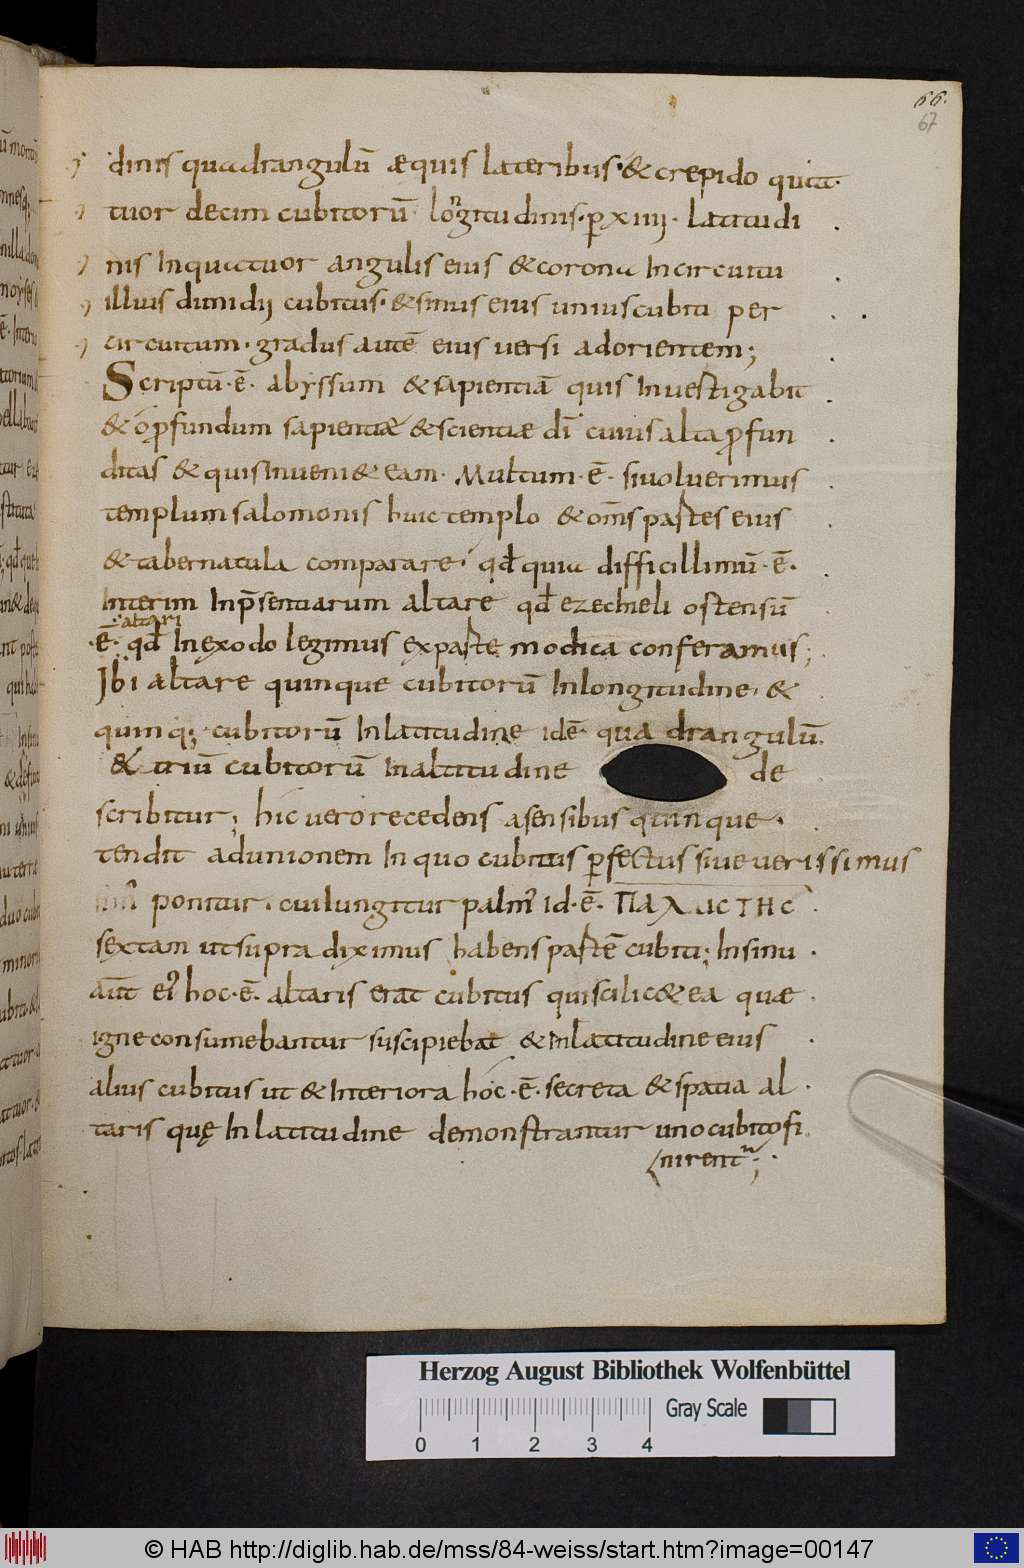 66.
67
dinis quadrangulū æquis lateribus· & crepido quat
tuor decim cubitorū longitudinis· ꝑ xiiii· latitudi
nis In quattuor angulis eius & corona In circuitu
illius dimidij cubitus· & sinus eius unius cubiti per
circuitum· gradus autē eius versi ad orientem;
Scriptū·ē· abyssum & sapientiā quis Investigabit
& ꝓfundum sapientiæ & scientiæ dī cuius alta ꝓfun
ditas & quis Inveni& eam· Multum·ē· si voluerimus
templum salomonis huic templo & om̄s partes eius
& tabernacula comparare· qd̄ quia difficillimū·ē·
Interim Inp̄sentiarum altare qd̄ ezechieli ostensū
altari
·ē· qd̄ In exodo legimus ex parte modica conferamus;
Ibi altare quinque cubitorū In longitudine· &
quinq; cubitorū In latitudine idē quadrangulū
& triū cubitorū In altitudine de
scribitur; hic vero recedens a sensibus quinque·
tendit ad unionem In quo cubitus ꝑfectus sive verissimus
ponitur· cui Iungitur palm̄ id·ē· ΠΑΛΑΙCΤΗC
sextam ut supra diximus habens partē cubiti; In sinu
aūt ei' hoc·ē· altaris erat cubitus qui scilic& ea quæ
igne consumebantur suscipiebat & In latitudine eius
alius cubitus ut & Interiora hoc·ē· secreta & spatia al
taris quę In latitudine demonstrantur uno cubito fi
nirent;
Herzog August Bibliothek Wolfenbüttel
Gray Scale
0 1 2 3 4
© HAB http://diglib.hab.de/mss/84-weiss/start.htm?image=00147